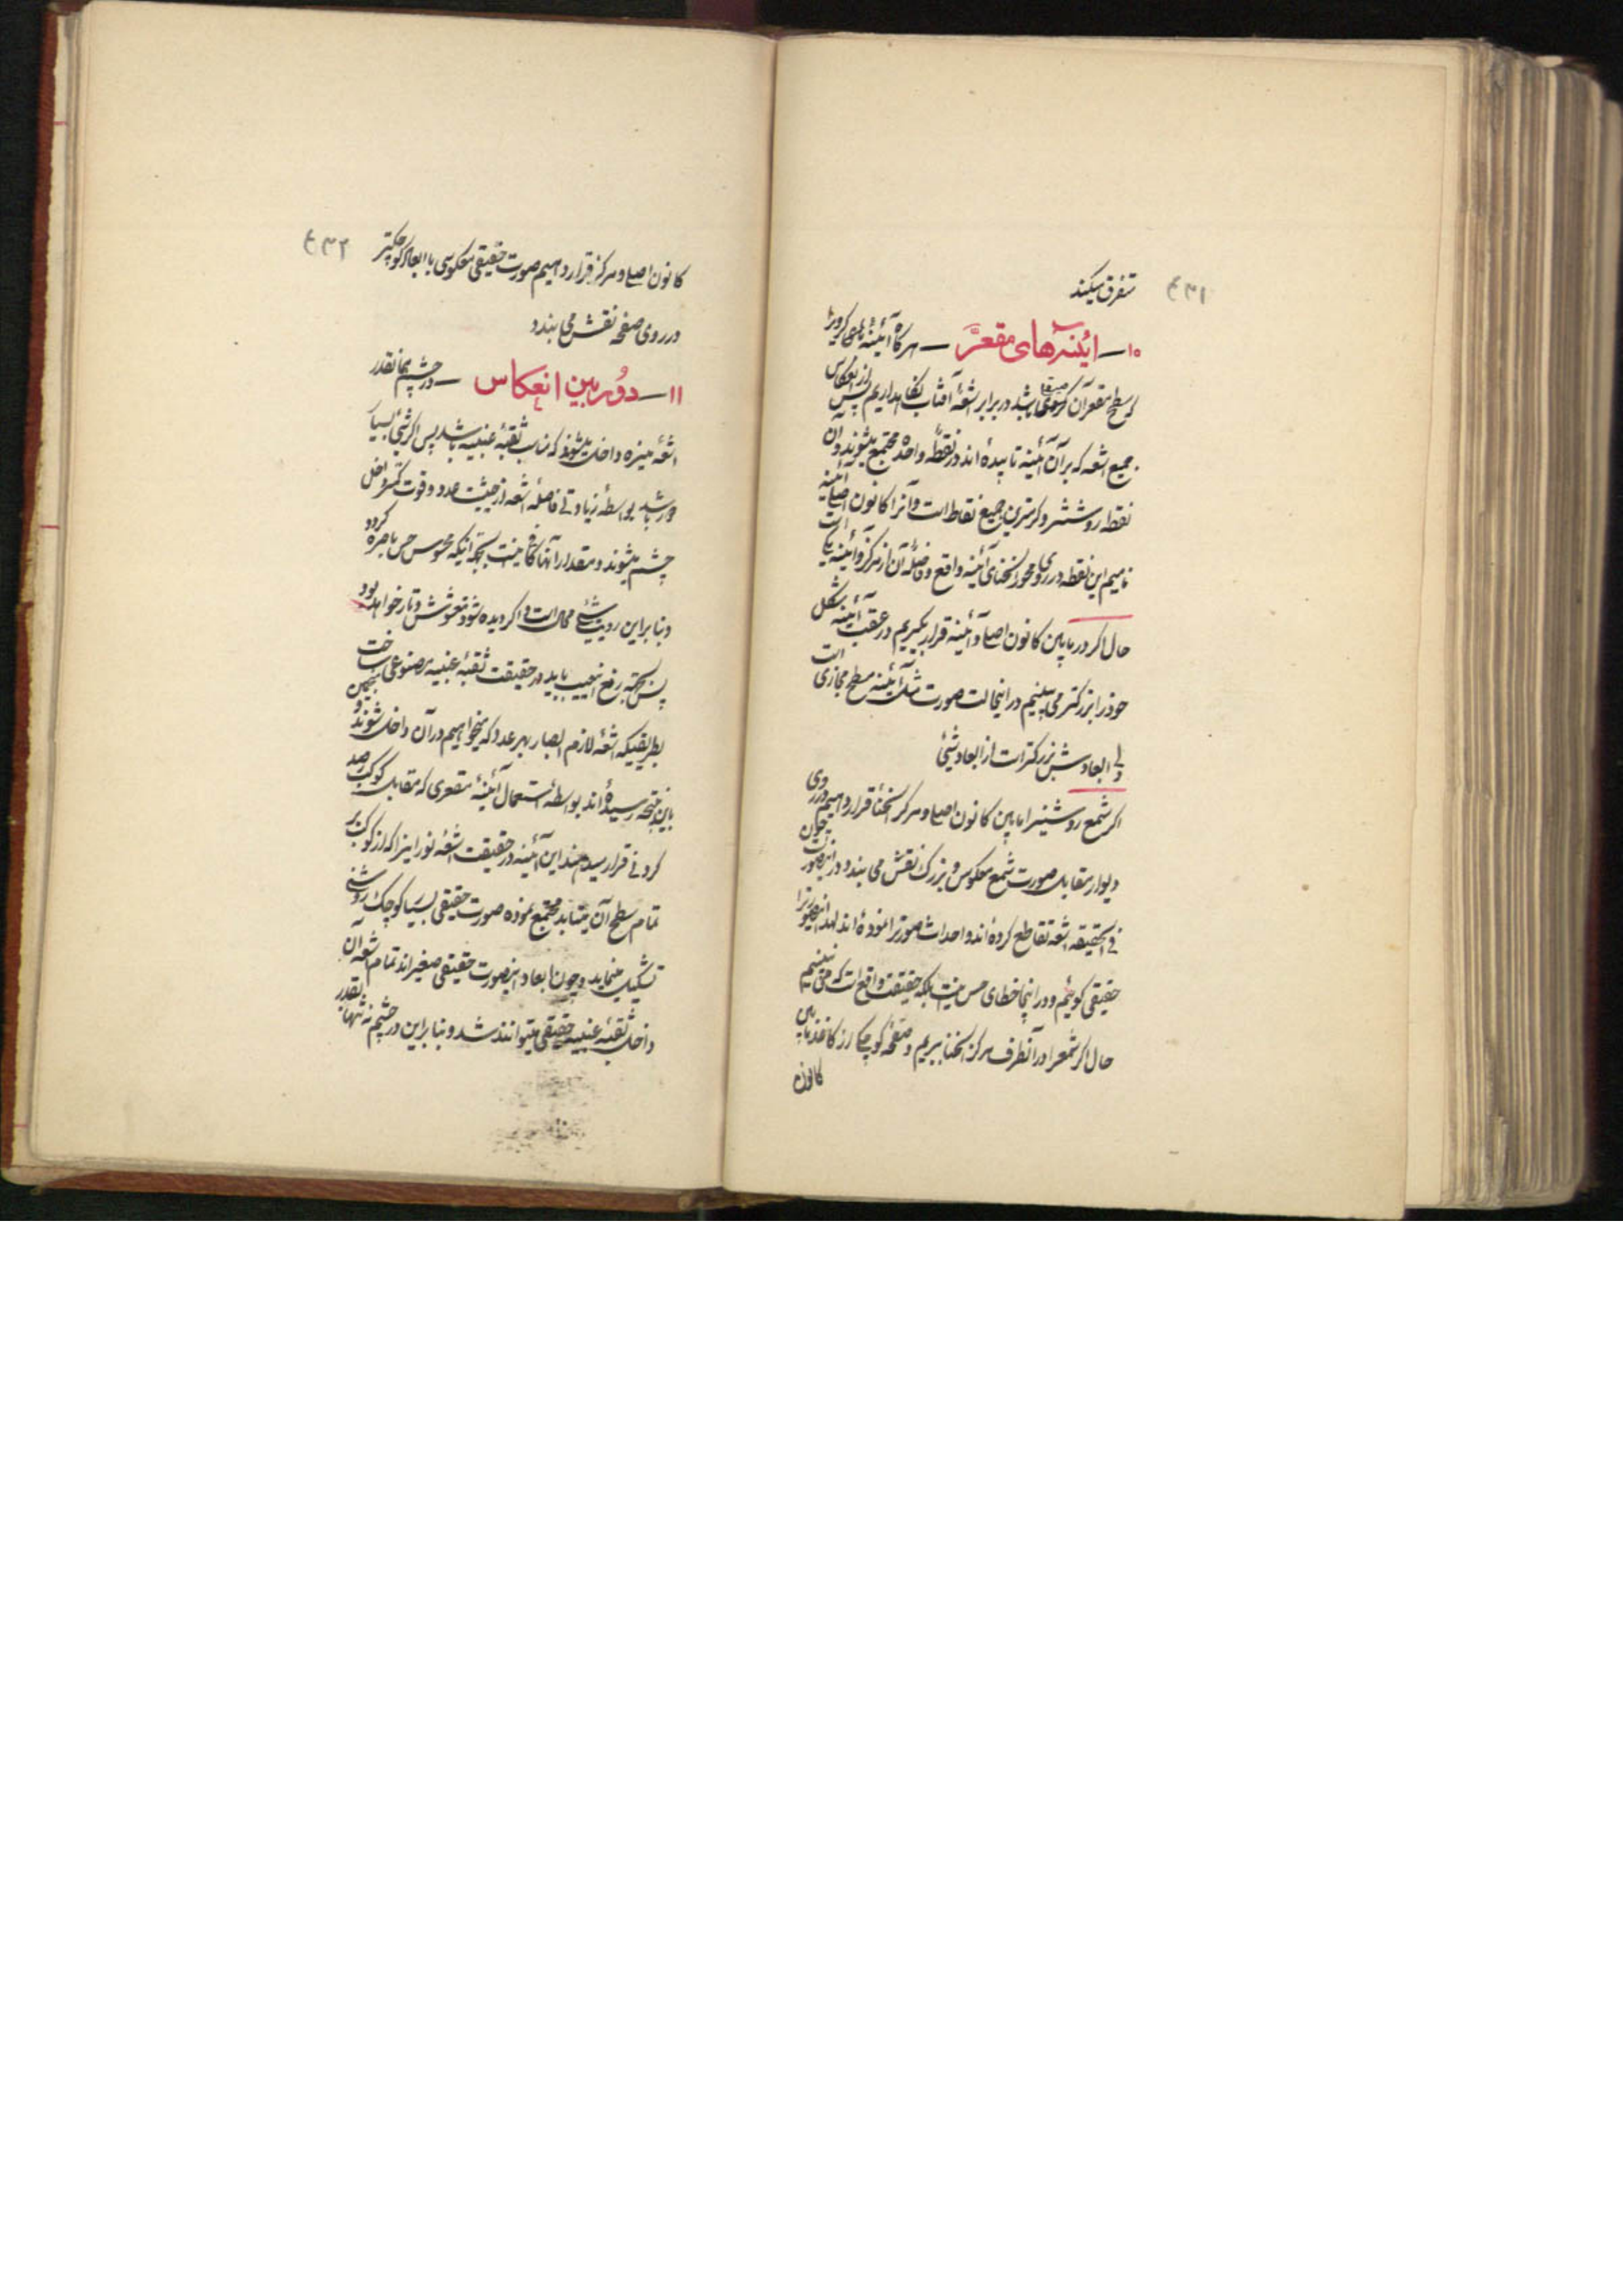 ۴۳۱
متفرق میکند
۱۰ــ آئینه‌های مقعَّر ــ هرگاه آئینهٔ های کرویرا
که سطح مقعر آن کروی صیقلی باشد در برابر اشعهٔ آفتاب نگاهداریم پس از انعکاس
جمیع اشعه که بر آن آئینه تابیده‌اند در نقطهٔ واحده مجتمع میشوند و آن
نقطه روشنتر و گرمترین جمیع نقاط است و آنرا کانون اصلی آئینه
نامیم این نقطه در روی محور انحنای آئینه واقع و فاصلهٔ آن از مرکز و آئینه یکی است
حال اگر در مابین کانون اصلی و آئینه قرار بگیریم در عقب آئینه شکل
خود را بزرگتر می‌بینیم در اینحالت صورت مثل آئینه مسطح مجازی است
ولی ابعادش بزرگتر است از ابعاد شیئی
اگر شمع روشنیرا مابین کانون اصلی و مرکز انحنا قرار دهیم در روی
دیوار مقابل صورت شمع معکوس و بزرگ نقش می بندد در اینصورت چون
فی الحقیقه اشعه تقاطع کرده‌اند و احداث صورترا نموده‌اند لهذا اینصورترا
حقیقی گوئیم و در اینجا خطای حس نیست بلکه حقیقت واقع است که می بینیم
حال اگر شمعرا در آنطرف مرکز انحنا ببریم و صفحهٔ کوچکی از کاغذ مابین
کانون
۴۳۲
کانون اصلی و مرکز قرار دهیم صورت حقیقی معکوسی با ابعاد کوچکتر
در روی صفحه نقش می بندد
۱۱ــ دوُربین انعکاس ــ در چشم همانقدر
اشعه منیره داخل میشوند که مناسب ثقبهٔ عنبیه باشد پس اگر شیئی بسیار
دور باشد بواسطه زیادتی فاصله اشعه از حیثیت عدد و قوت کمتر داخل
چشم میشوند و مقدار آنها کافی نیست بجهة اینکه محسوس حس باصره گردد
و بنابراین رویت شیئی محال است و اگر دیده شود مغشوش و تار خواهد بود
پس بجهة رفع این عیب باید در حقیقت ثقبهٔ عنبیه مصنوعی ساخت
بطریقیکه اشعهٔ لازم ابصار بهر عدد که بخواهیم در آن داخل شوند و منجمین
باین نتیجه رسیده‌اند بواسطهٔ استعمال آئینهٔ مقعری که مقابل کوکب رصد
کردنی قرار میدهند این آئینه در حقیقت اشعهٔ نورانیرا که از کوکب بر
تمام سطح آن میتابد مجتمع نموده صورت حقیقی بسیار کوچک روشنی
تشکیل مینماید و چون ابعاد اینصورت حقیقی صغیراند تمام اشعه آن
داخل ثقبهٔ عنبیهٔ حقیقی میتوانند شد و بنابراین در چشم نه تنها بقدر